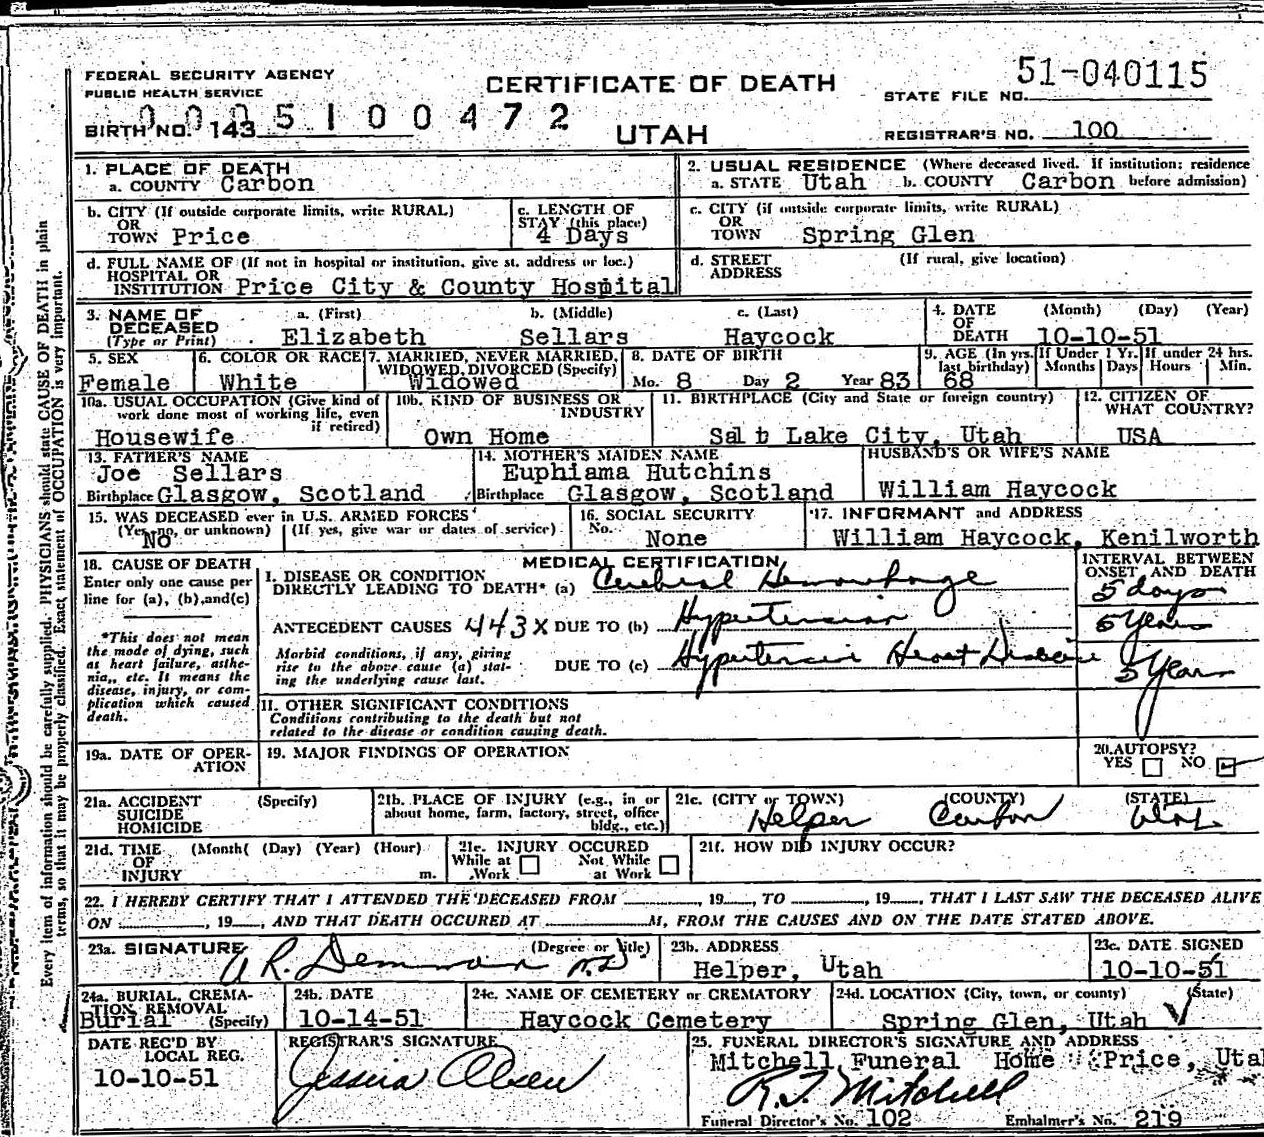 FEDERAL SECURITY AGENCY
PUBLIC HEALTH SERVICE
CERTIFICATE OF DEATH
UTAH
51-040115
STATE FILE NO.
0005100472
BIRTH NO. 143
REGISTRAR'S NO. 100
Every item of information should be carefully supplied. PHYSICIANS should state CAUSE OF DEATH in plain
terms, so that it may be properly classified. Exact statement of OCCUPATION is very important.
1. PLACE OF DEATH
a. COUNTY Carbon
2. USUAL RESIDENCE (Where deceased lived. If institution: residence
a. STATE Utah b. COUNTY Carbon before admission)
b. CITY (If outside corporate limits, write RURAL)
OR
TOWN Price
c. LENGTH OF
STAY (this place)
4 Days
c. CITY (if outside corporate limits, write RURAL)
OR
TOWN Spring Glen
d. FULL NAME OF (If not in hospital or institution, give st. address or loc.)
HOSPITAL OR
INSTITUTION Price City & County Hospital
d. STREET (If rural, give location)
ADDRESS
3. NAME OF a. (First) b. (Middle) c. (Last)
DECEASED
(Type or Print) Elizabeth Sellars Haycock
4. DATE (Month) (Day) (Year)
OF
DEATH 10-10-51
5. SEX
Female
6. COLOR OR RACE
White
7. MARRIED, NEVER MARRIED,
WIDOWED, DIVORCED (Specify)
Widowed
8. DATE OF BIRTH
Mo. 8 Day 2 Year 83
9. AGE (In yrs. last birthday)
68
If Under 1 Yr.
Months Days
If under 24 hrs.
Hours Min.
10a. USUAL OCCUPATION (Give kind of
work done most of working life, even
if retired)
Housewife
10b. KIND OF BUSINESS OR
INDUSTRY
Own Home
11. BIRTHPLACE (City and State or foreign country)
Salt Lake City, Utah
12. CITIZEN OF
WHAT COUNTRY?
USA
13. FATHER'S NAME
Joe Sellars
Birthplace Glasgow, Scotland
14. MOTHER'S MAIDEN NAME
Euphiama Hutchins
Birthplace Glasgow, Scotland
HUSBAND'S OR WIFE'S NAME
William Haycock
15. WAS DECEASED ever in U.S. ARMED FORCES
(Yes, no, or unknown) (If yes, give war or dates of service)
No
16. SOCIAL SECURITY
No. None
17. INFORMANT and ADDRESS
William Haycock, Kenilworth
18. CAUSE OF DEATH
Enter only one cause per
line for (a), (b), and(c)
*This does not mean
the mode of dying, such
as heart failure, asthe-
nia,, etc. It means the
disease, injury, or com-
plication which caused
death.
MEDICAL CERTIFICATION
INTERVAL BETWEEN
ONSET AND DEATH
I. DISEASE OR CONDITION
DIRECTLY LEADING TO DEATH* (a) Cerebral Hemorrhage 5 days
ANTECEDENT CAUSES 443X DUE TO (b) Hypertension 5 years
Morbid conditions, if any, giving
rise to the above cause (a) stat-
ing the underlying cause last.
DUE TO (c) Hypertensive Heart Disease 5 years
11. OTHER SIGNIFICANT CONDITIONS
Conditions contributing to the death but not
related to the disease or condition causing death.
19a. DATE OF OPER-
ATION
19. MAJOR FINDINGS OF OPERATION
20. AUTOPSY?
YES NO
21a. ACCIDENT (Specify)
SUICIDE
HOMICIDE
21b. PLACE OF INJURY (e.g., in or
about home, farm, factory, street, office
bldg., etc.)
21c. (CITY or TOWN) (COUNTY) (STATE)
Helper Carbon Utah
21d. TIME (Month( (Day) (Year) (Hour)
OF
INJURY m.
21e. INJURY OCCURED
While at Work Not While at Work
21f. HOW DID INJURY OCCUR?
22. I HEREBY CERTIFY THAT I ATTENDED THE DECEASED FROM , 19 , TO , 19 , THAT I LAST SAW THE DECEASED ALIVE
ON , 19 , AND THAT DEATH OCCURED AT M, FROM THE CAUSES AND ON THE DATE STATED ABOVE.
23a. SIGNATURE (Degree or title)
A R. Demman M.D
23b. ADDRESS
Helper, Utah
23c. DATE SIGNED
10-10-51
24a. BURIAL, CREMA-
TION REMOVAL
Burial (Specify)
24b. DATE
10-14-51
24c. NAME OF CEMETERY or CREMATORY
Haycock Cemetery
24d. LOCATION (City, town, or county) (State)
Spring Glen, Utah
DATE REC'D BY
LOCAL REG.
10-10-51
REGISTRAR'S SIGNATURE
Jessie Olsen
25. FUNERAL DIRECTOR'S SIGNATURE AND ADDRESS
Mitchell Funeral Home Price, Utah
R.T. Mitchell
Funeral Director's No. 102 Embalmer's No. 219